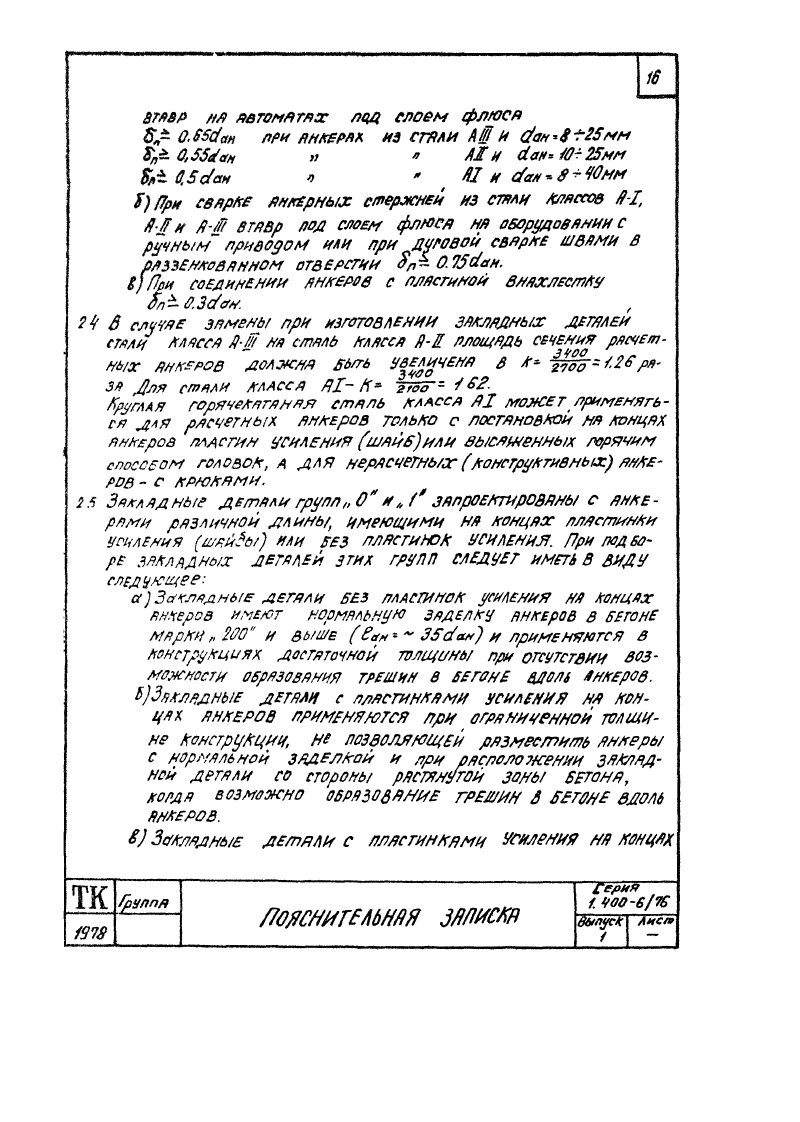 16
втавр на автоматах под слоем флюса
δп ≥ 0.65dан при анкерах из стали АIII и dан = 8÷25мм
δп ≥ 0,55dан " " АII и dан = 10÷25мм
δп ≥ 0,5dан " " АI и dан = 8÷40мм
б) При сварке анкерных стержней из стали классов А-I,
А-II и А-III втавр под слоем флюса на оборудовании с
ручным приводом или при дуговой сварке швами в
раззенкованном отверстии δп ≥ 0.75dан.
в) При соединении анкеров с пластиной внахлестку
δп ≥ 0.3dан.
2.4 В случае замены при изготовлении закладных деталей
стали класса А-III на сталь класса А-II площадь сечения расчет-
ных анкеров должна быть увеличена в К= 3400/2700 = 1.26 ра-
за Для стали класса АI- К= 3400/2100 = 1 62.
Круглая горячекатаная сталь класса АI может применять-
ся для расчетных анкеров только с постановкой на концах
анкеров пластин усиления (шайб) или высаженных горячим
способом головок, а для нерасчетных (конструктивных) анке-
ров - с крюками.
2.5 Закладные детали групп „0" и „1" запроектированы с анке-
рами различной длины, имеющими на концах пластинки
усиления (шайбы) или без пластинок усиления. При подбо-
ре закладных деталей этих групп следует иметь в виду
следующее:
а) Закладные детали без пластинок усиления на концах
анкеров имеют нормальную заделку анкеров в бетоне
марки „200" и выше (ℓан = ~ 35dан) и применяются в
конструкциях достаточной толщины при отсутствии воз-
можности образования трещин в бетоне вдоль анкеров.
б) Закладные детали с пластинками усиления на кон-
цах анкеров применяются при ограниченной толщи-
не конструкции, не позволяющей разместить анкеры
с нормальной заделкой и при расположении заклад-
ной детали со стороны растянутой зоны бетона,
когда возможно образование трещин в бетоне вдоль
анкеров.
в) Закладные детали с пластинками усиления на концах
ТК
1978
Группа
Пояснительная записка
Серия
1.400-6/76
Выпуск Лист
1 —